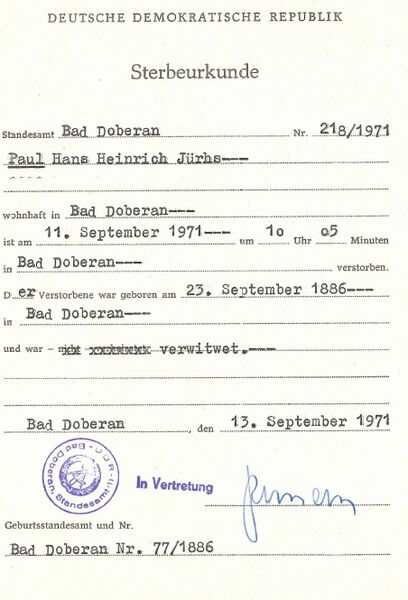 DEUTSCHE DEMOKRATISCHE REPUBLIK
Sterbeurkunde
Standesamt Bad Doberan Nr. 218/1971
Paul Hans Heinrich Jürhs---
wohnhaft in Bad Doberan---
ist am 11. September 1971--- um 10 Uhr 05 Minuten
in Bad Doberan--- verstorben.
D er Verstorbene war geboren am 23. September 1886---
in Bad Doberan---
und war – verwitwet.---
Bad Doberan, den 13. September 1971
Bad Doberan, Standesamt
In Vertretung
Geburtsstandesamt und Nr.
Bad Doberan Nr. 77/1886